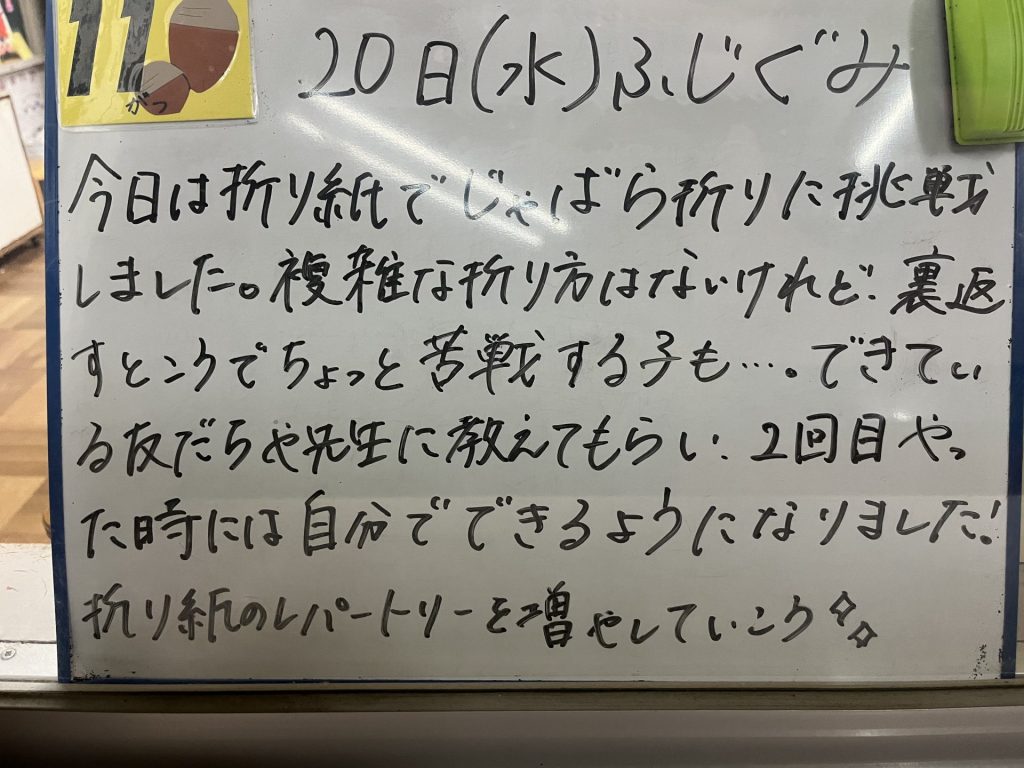 11
がつ
20日(水)ふじぐみ
今日は折り紙でじゃばら折りに挑戦
しました。複雑な折り方はないけれど、裏返
すところでちょっと苦戦する子も…。できてい
る友だちや先生に教えてもらい、2回目やっ
た時には自分でできるようになりました!
折り紙のレパートリーを増やしていこう